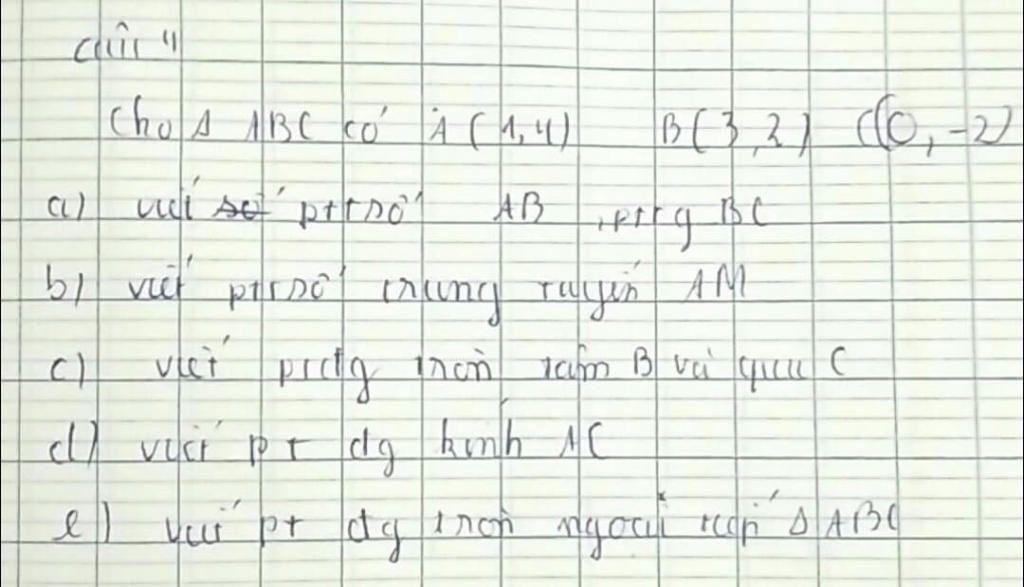 câu 4
Cho Δ ABC có A(1,4) B(3,2) C(0,-2)
a) viết ptt số AB, pttg BC
b) viết ptt số trung tuyến AM
c) viết ptđg tròn tâm B và qua C
d) viết pt đg kính AC
e) viết pt đg tròn ngoại tiếp Δ ABC